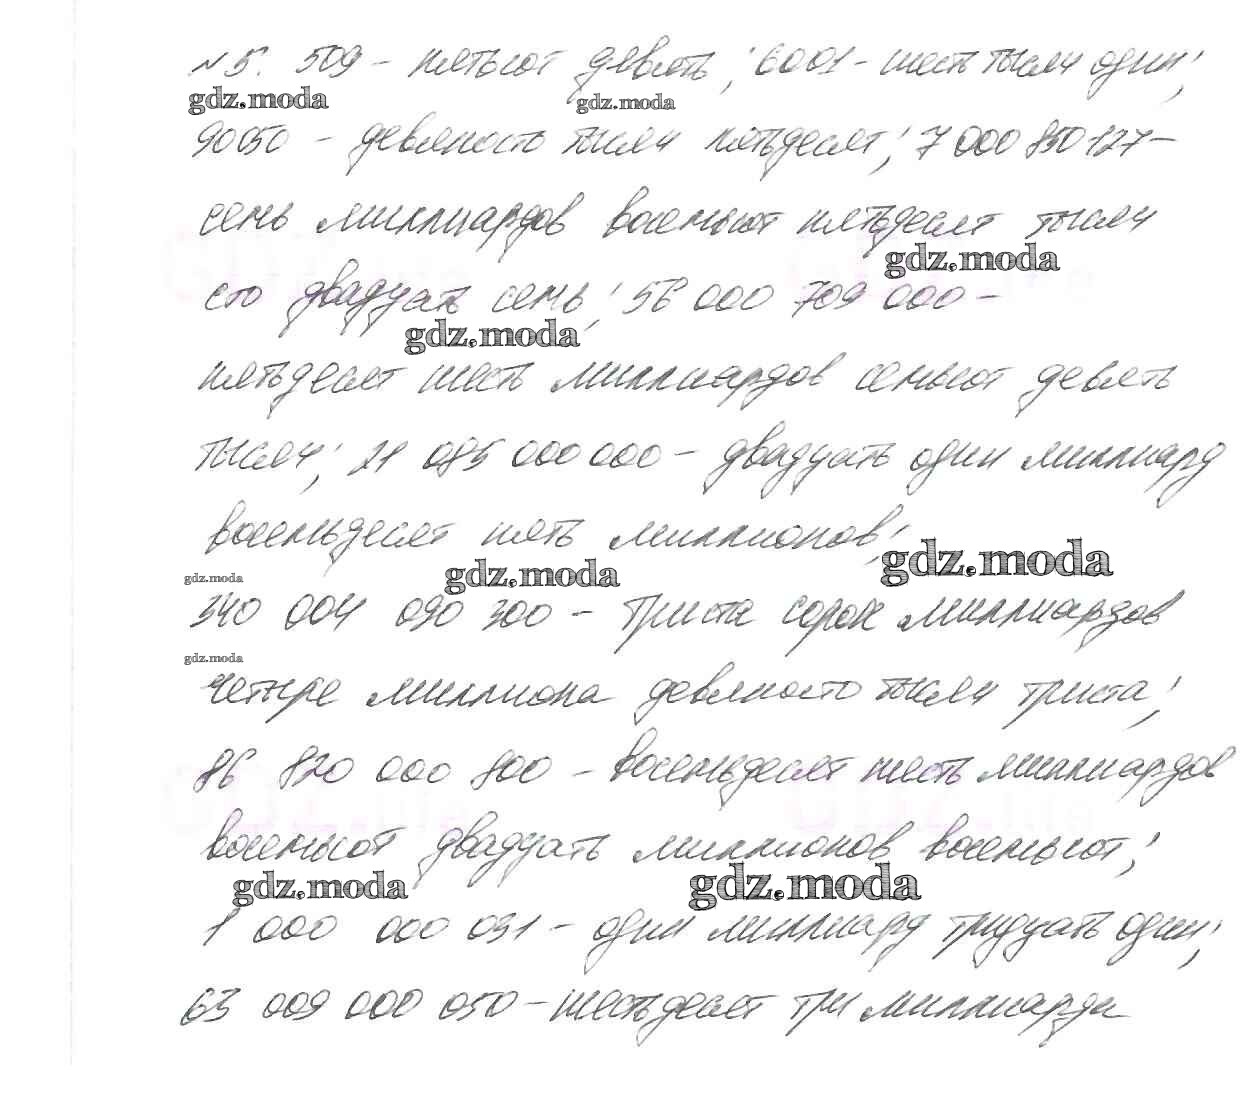 №5. 509 – пятьсот девять; 6001 – шесть тысяч один;
gdz.moda gdz.moda
90050 – девяносто тысяч пятьдесят; 7 000 850 127 –
семь миллиардов восемьсот пятьдесят тысяч
gdz.moda
сто двадцать семь; 56 000 709 000 –
gdz.moda
пятьдесят шесть миллиардов семьсот девять
тысяч; 21 085 000 000 – двадцать один миллиард
восемьдесят пять миллионов;
gdz.moda gdz.moda gdz.moda
340 004 090 300 – триста сорок миллиардов
gdz.moda
четыре миллиона девяносто тысяч триста;
86 820 000 800 – восемьдесят шесть миллиардов
восемьсот двадцать миллионов восемьсот;
gdz.moda gdz.moda
1 000 000 031 – один миллиард тридцать один;
63 009 000 050 – шестьдесят три миллиарда